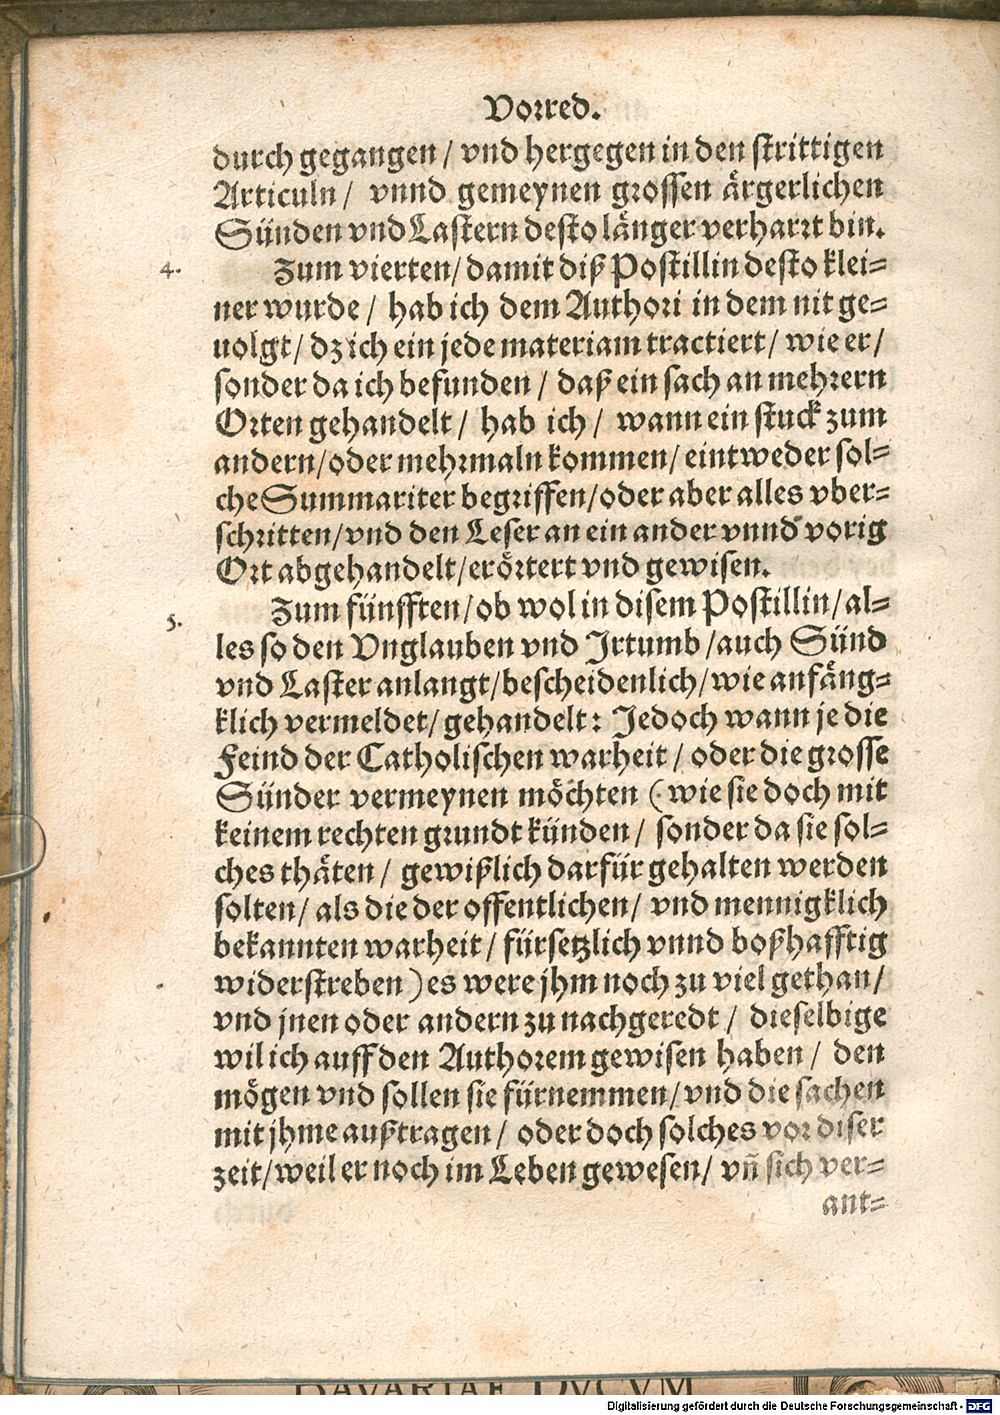 Vorred.
durch gegangen / vnd hergegen in den strittigen
Articuln / vnnd gemeynen grossen ärgerlichen
Sünden vnd Lastern desto länger verharrt bin.
4.
Zum vierten / damit diß Postillin desto klei=
ner wurde / hab ich dem Authori in dem nit ge=
uolgt / dz ich ein jede materiam tractiert / wie er /
sonder da ich befunden / daß ein sach an mehrern
Orten gehandelt / hab ich / wann ein stuck zum
andern / oder mehrmaln kommen / eintweder sol=
che Summariter begriffen / oder aber alles vber=
schritten / vnd den Leser an ein ander vnnd vorig
Ort abgehandelt / erörtert vnd gewisen.
5.
Zum fünfften / ob wol in disem Postillin / al=
les so den Vnglauben vnd Jrtumb / auch Sünd
vnd Laster anlangt / bescheidenlich / wie anfäng=
klich vermeldet / gehandelt: Jedoch wann je die
Feind der Catholischen warheit / oder die grosse
Sünder vermeynen möchten ( wie sie doch mit
keinem rechten grundt künden / sonder da sie sol=
ches thäten / gewißlich darfür gehalten werden
solten / als die der offentlichen / vnd mennigklich
bekannten warheit / fürsetzlich vnnd boßhafftig
widerstreben ) es were jhm noch zu viel gethan /
vnd jnen oder andern zu nachgeredt / dieselbige
wil ich auff den Authorem gewisen haben / den
mögen vnd sollen sie fürnemmen / vnd die sachen
mit jhme außtragen / oder doch solches vor diser
zeit / weil er noch im Leben gewesen / vñ sich ver=
ant=
BAVARIAE DVCVM
Digitalisierung gefördert durch die Deutsche Forschungsgemeinschaft - DFG